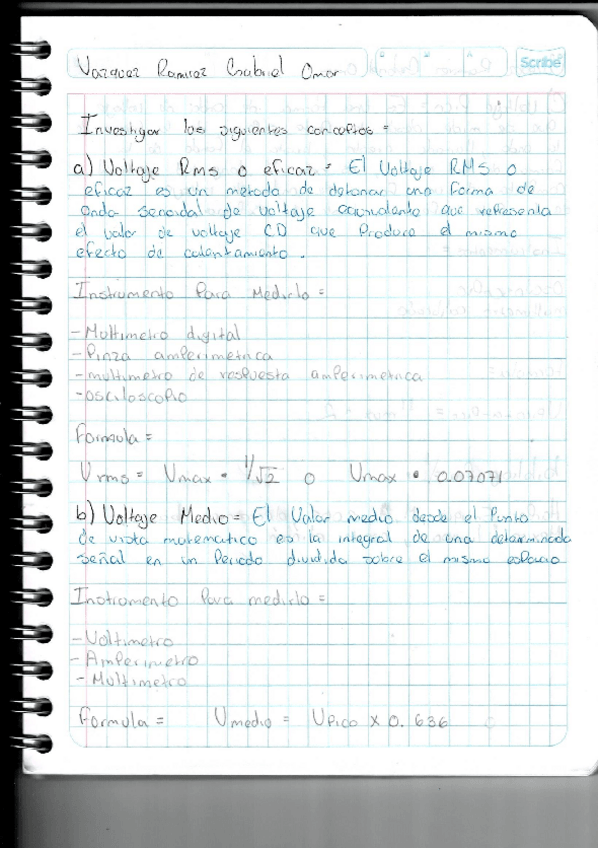 Vazquez Ramirez Gabriel Omar
Scribe
Investigar los siguientes conceptos =
a) Voltaje Rms o eficaz = El Voltaje RMS o
eficaz es un metodo de detonar una forma de
onda senoidal de voltaje equivalente que representa
el valor de voltaje CD que Produce el mismo
efecto de calentamiento.
Instrumento Para Medirlo =
- Multimetro digital
- Pinza amperimetrica
- multimetro de respuesta amperimetrica
- osciloscopio
formula =
Vrms = Vmax * 1/√2 o Vmax * 0.07071
b) Voltaje Medio = El Valor medio desde el Punto
de vista matematico es la integral de una determinada
señal en un Periodo dividida sobre el mismo espacio
Instrumento Para medirlo =
- Voltimetro
- Amperimetro
- Multimetro
formula = Vmedio = Vpico x 0.636